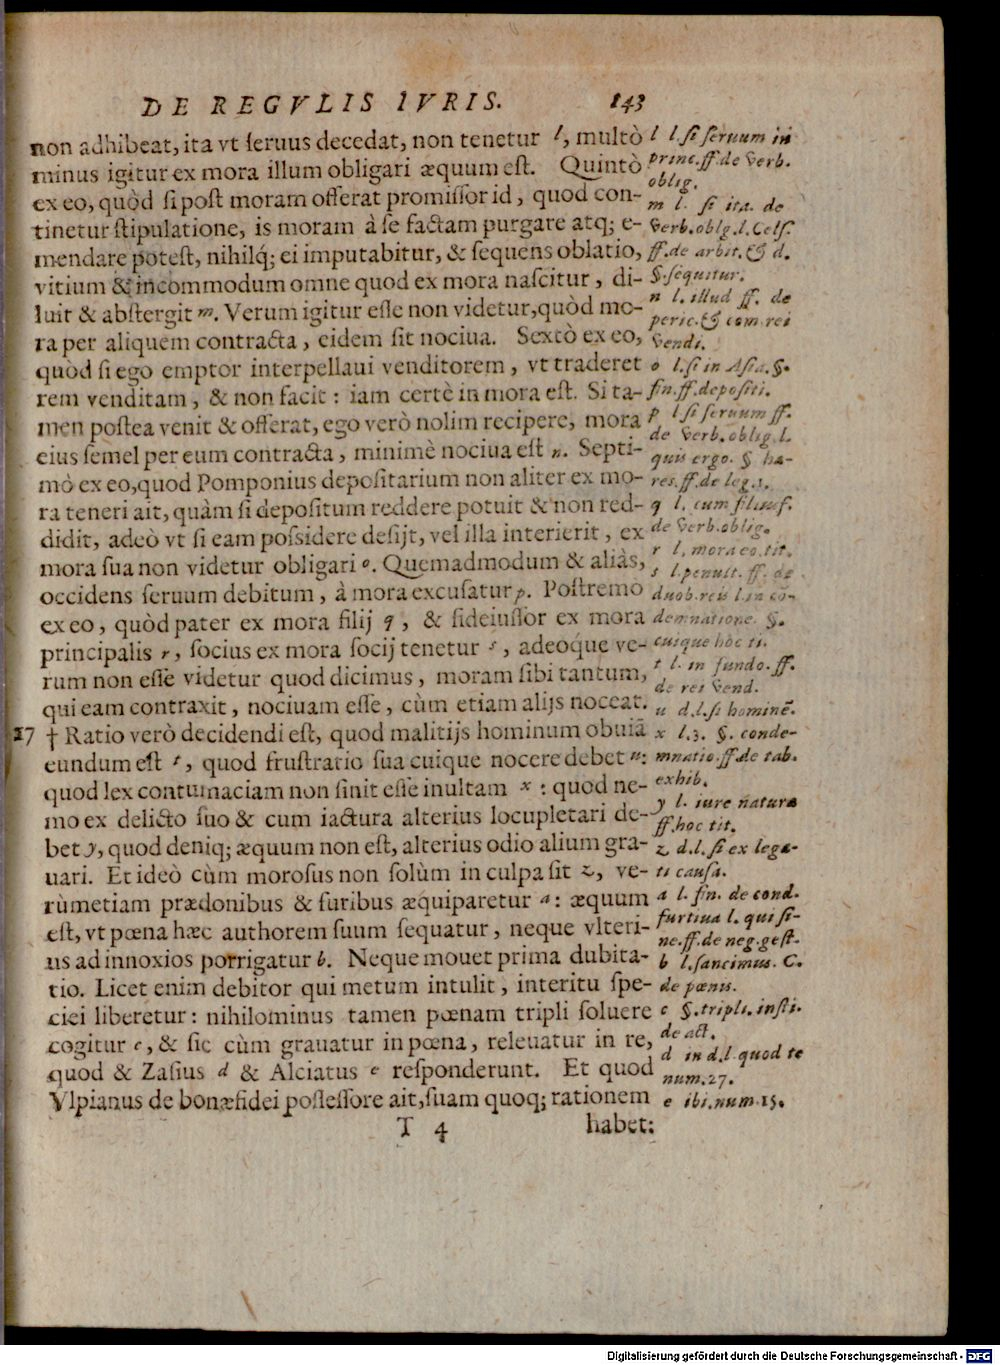 DE REGVLIS IVRIS. 143
non adhibeat, ita vt ſeruus decedat, non tenetur l, multò
minus igitur ex mora illum obligari æquum eſt. Quintò
ex eo, quòd ſi poſt moram offerat promiſſor id, quod con-
tinetur ſtipulatione, is moram à ſe factam purgare atq; e-
mendare poteſt, nihilq́; ei imputabitur, & ſequens oblatio,
vitium & incommodum omne quod ex mora naſcitur, di-
luit & abſtergit m. Verum igitur eſſe non videtur, quòd mo-
ra per aliquem contracta, eidem ſit nociua. Sextò ex eo,
quòd ſi ego emptor interpellaui venditorem, vt traderet
rem venditam, & non facit: iam certè in mora eſt. Si ta-
men poſtea venit & offerat, ego verò nolim recipere, mora
eius ſemel per eum contracta, minimè nociua eſt n. Septi-
mò ex eo, quod Pomponius depoſitarium non aliter ex mo-
ra teneri ait, quàm ſi depoſitum reddere potuit & non red-
didit, adeò vt ſi eam poſsidere deſijt, vel illa interierit, ex
mora ſua non videtur obligari o. Quemadmodum & aliàs,
occidens ſeruum debitum, à mora excuſatur p. Poſtremò
ex eo, quòd pater ex mora filij q, & fideiuſſor ex mora
principalis r, ſocius ex mora ſocij tenetur s, adeoq́ue ve-
rum non eſſe videtur quod dicimus, moram ſibi tantum,
qui eam contraxit, nociuam eſſe, cùm etiam alijs noceat.
27 † Ratio verò decidendi eſt, quod malitijs hominum obuiā
eundum eſt t, quod fruſtratio ſua cuique nocere debet u:
quod lex contumaciam non ſinit eſſe inultam x: quod ne-
mo ex delicto ſuo & cum iactura alterius locupletari de-
bet y, quod deniq; æquum non eſt, alterius odio alium gra-
uari. Et ideò cùm moroſus non ſolùm in culpa ſit z, ve-
rùm etiam prædonibus & furibus æquiparetur a: æquum
eſt, vt pœna hæc authorem ſuum ſequatur, neque vlteri-
us ad innoxios porrigatur b. Neque mouet prima dubita-
tio. Licet enim debitor qui metum intulit, interitu ſpe-
ciei liberetur: nihilominus tamen pœnam tripli ſoluere
cogitur c, & ſic cùm grauatur in pœna, releuatur in re,
quod & Zaſius d & Alciatus e reſponderunt. Et quod
Vlpianus de bonæfidei poſſeſſore ait, ſuam quoq; rationem
T 4 habet:
l l. ſi ſeruum in
princ. ff. de verb.
oblig.
m l. ſi ita. de
verb. oblg. l. Celſ.
ff. de arbit. & d.
§. ſequitur.
n l. illud ff. de
peric. & com. rei
vendi.
o l. ſi in Aſia. §.
fin. ff. depoſiti.
p l. ſi ſeruum ff.
de verb. oblig. l.
quis ergo. § hæ-
res. ff. de leg. 1.
q l. cum filiusf.
de verb. oblig.
r l. mora eo. tit.
s l. penult. ff. de
duob. reis l. in co-
demnatione. §.
cuique hoc ti.
t l. in fundo. ff.
de rei vend.
u d. l. ſi hominē.
x l. 3. §. conde-
mnatio. ff. de tab.
exhib.
y l. iure naturæ
ff. hoc tit.
z d. l. ſi ex lega-
ti cauſa.
a l. fin. de cond.
furtiua l. qui ſi-
ne. ff. de neg. geſt.
b l. ſancimus. C.
de pœnis.
c §. tripli. inſti.
de act.
d in d. l. quod te
num. 27.
e ibi. num. 15.
Digitalisierung gefördert durch die Deutsche Forschungsgemeinschaft - DFG